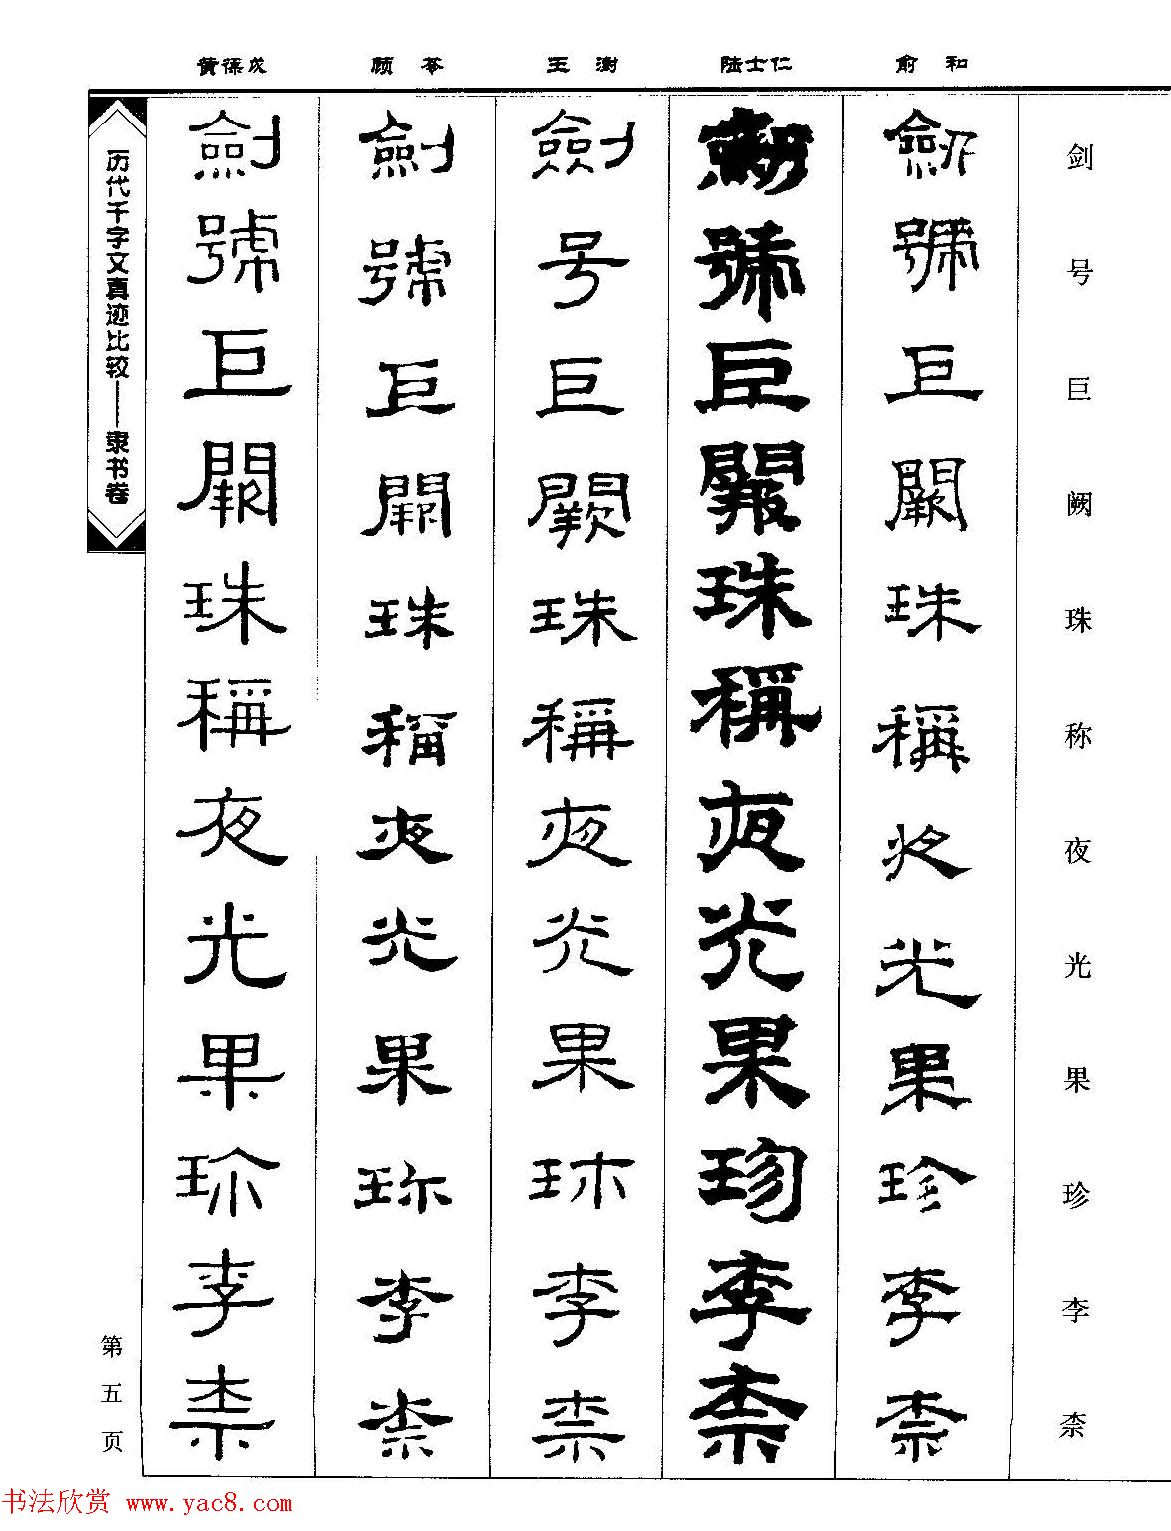 黄葆戉 顾苓 王澍 陆士仁 俞和
剑号巨阙珠称夜光果珍李柰
劒號巨闕珠稱夜光果珍李柰
劒號巨闕珠稱夜光果珍李柰
劍号巨闕珠稱夜光果珎李柰
劍號巨闕珠稱夜光果珎李柰
劍號巨闕珠稱夜光果珎李柰
历代千字文真迹比较——隶书卷
第五页
书法欣赏 www.yac8.com